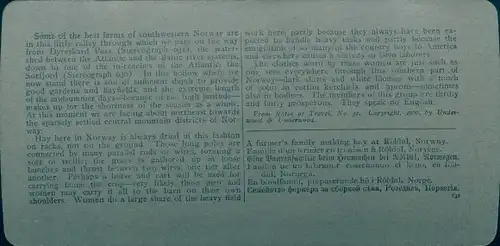 Some of the best farms of southwestern Norway are
in this little valley through which we pass on the way
from Dyreskard Pass (Stereograph 096), the water-
shed between the Atlantic and the inner river systems,
down to one of the inreaches of the Atlantic, the
Sorfjord (Stereograph 096). In this hollow where we
now stand there is soil of sufficient depth to provide
good gardens and hayfields, and the extreme length
of the midsummer days—because of the high latitude—
makes up for the shortness of the season as a whole.
At this moment we are facing about northwest towards
the sparsely settled central mountain districts of Nor-
way.
Hay here in Norway is always dried in this fashion
on racks, not on the ground. Those long poles are
connected by many parallel rods or wires, forming a
sort of trellis; the grass is gathered up in loose
bunches and thrust between two wires, one tier after
another. Perhaps a horse and cart will be used for
carrying home the crop—very likely those men and
women may carry it all to the barn on their own
shoulders. Women do a large share of the heavy field
work here, partly because they always have been ex-
pected to handle heavy tasks and partly because the
emigration of so many of the country boys to America
and elsewhere causes a scarcity of farm laborers.
The clothes worn by these women are just such as
one sees everywhere through this southern part of
Norway—dark skirt and white blouse with a touch
of color in cotton kerchiefs and aprons—sometimes
also in bodices. The members of this group are thrifty
and fairly prosperous. They speak no English.
From Notes of Travel, No. 31. Copyright, 1906, by Under-
wood & Underwood.
A farmer's family making hay at Röldal, Norway.
Famille d'un fermier en fenaison à Röldal, Norvège.
Eine Bauernfamilie beim Heumachen bei Röldal, Norwegen.
Familia de un labrador cosechando el heno, en Röl-
dal, Noruega.
En bondfamilj, preparerande hö i Röldal, Norge.
Семейство фермера за сборкой сѣна, Рольдаль, Норвегія.